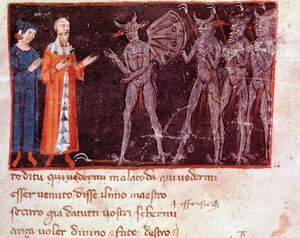 reditu qui vedermi malacoda qui vedermi
esser venuto disse ilmio maestro
securo gia datutti vostri schermi
ança voler divino e fato destro